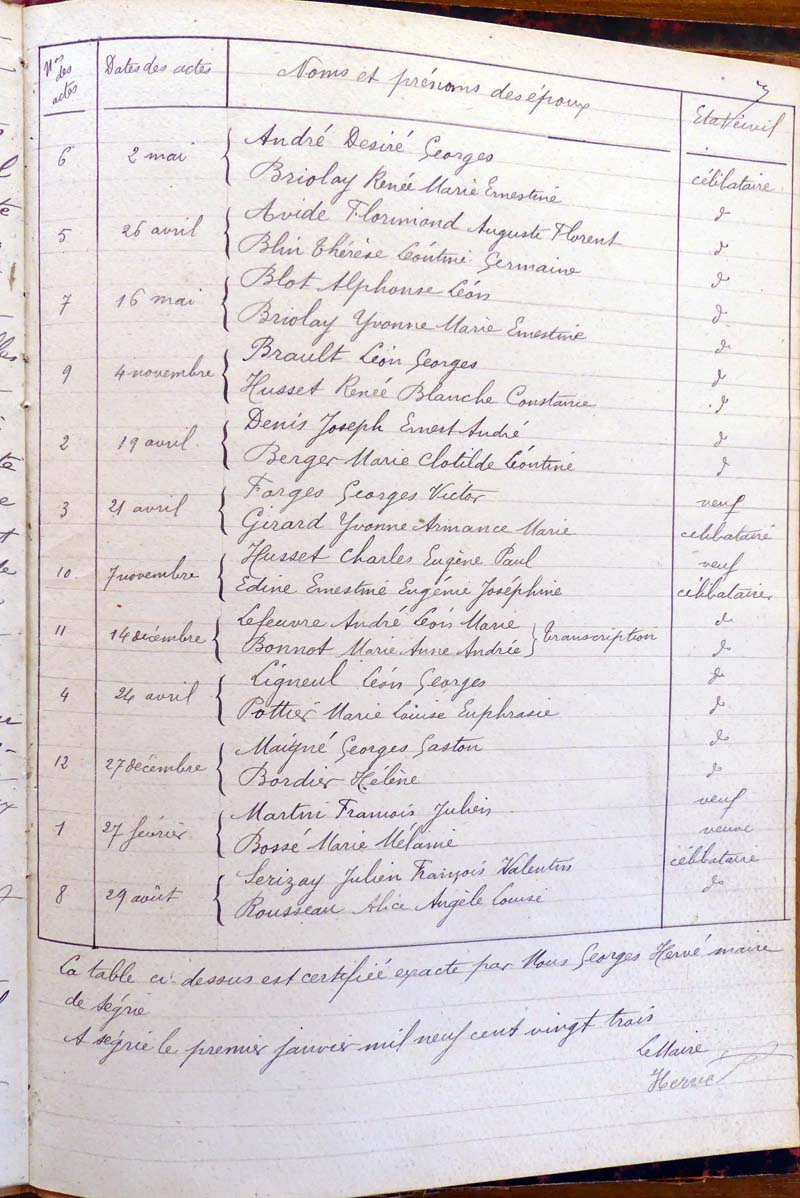 Nos des actes Dates des actes Noms et prénoms des époux Etat civil
6 2 mai André Desiré Georges célibataire
Briolay Renée Marie Ernestine d
5 26 avril Avide Florimond Auguste Florent d
Blin Thérèse Léontine Germaine d
7 16 mai Blot Alphonse Léon d
Briolay Yvonne Marie Ernestine d
9 4 novembre Brault Léon Georges d
Husset Renée Blanche Constance d
2 19 avril Denis Joseph Ernest André d
Berger Marie Clotilde Léontine d
3 21 avril Forges Georges Victor veuf
Girard Yvonne Armance Marie célibataire
10 7 novembre Husset Charles Eugène Paul veuf
Edine Ernestine Eugénie Joséphine célibataire
11 14 décembre Lefeuvre André Léon Marie Transcription d
Bonnot Marie Anne Andrée d
4 24 avril Ligneul Léon Georges d
Pottier Marie Louise Euphrasie d
12 27 décembre Maigné Georges Gaston d
Bordier Hélène d
1 27 février Martin François Julien veuf
Bossé Marie Mélanie veuve
8 29 août Serizay Julien François Valentin célibataire
Rousseau Alice Angèle Louise d
La table ci dessus est certifiée exacte par Nous Georges Hervé maire
de Ségrie
A Ségrie le premier janvier mil neuf cent vingt trois
Le Maire
Hervé